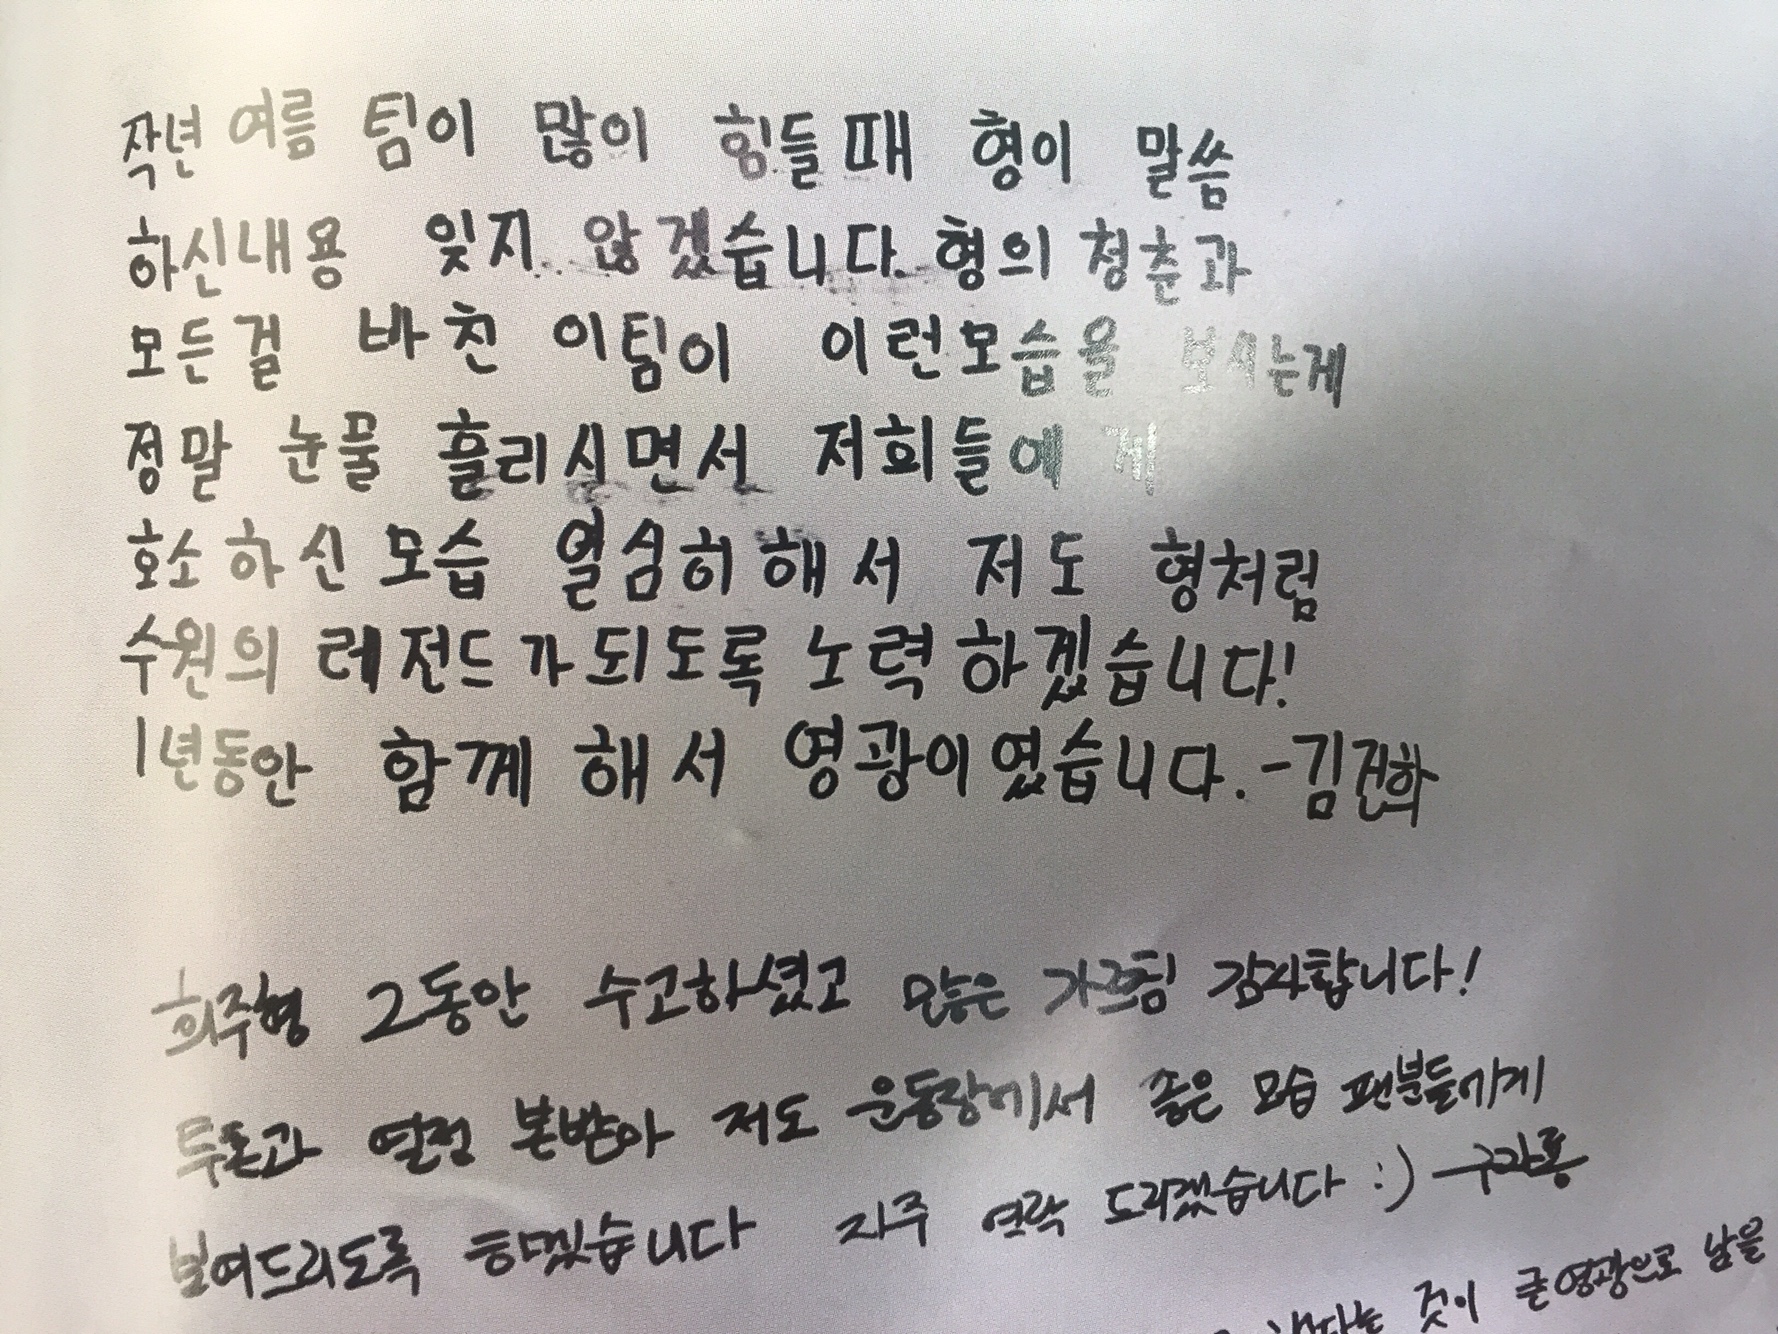 작년 여름 팀이 많이 힘들때 형이 말씀
하신내용 잊지 않겠습니다. 형의 청춘과
모든걸 바친 이팀이 이런모습을 보시는게
정말 눈물 흘리시면서 저희들에게
호소하신 모습 열심히 해서 저도 형처럼
수원의 레전드가되도록 노력하겠습니다!
1년동안 함께해서 영광이였습니다. -김건희
희주형 그동안 수고하셨고 많은 가르침 감사합니다!
투혼과 열정 본받아 저도 운동장에서 좋은 모습 팬분들에게
보여드리도록 하겠습니다 자주 연락 드리겠습니다 :) -구자룡
것이 큰영광으로 남을